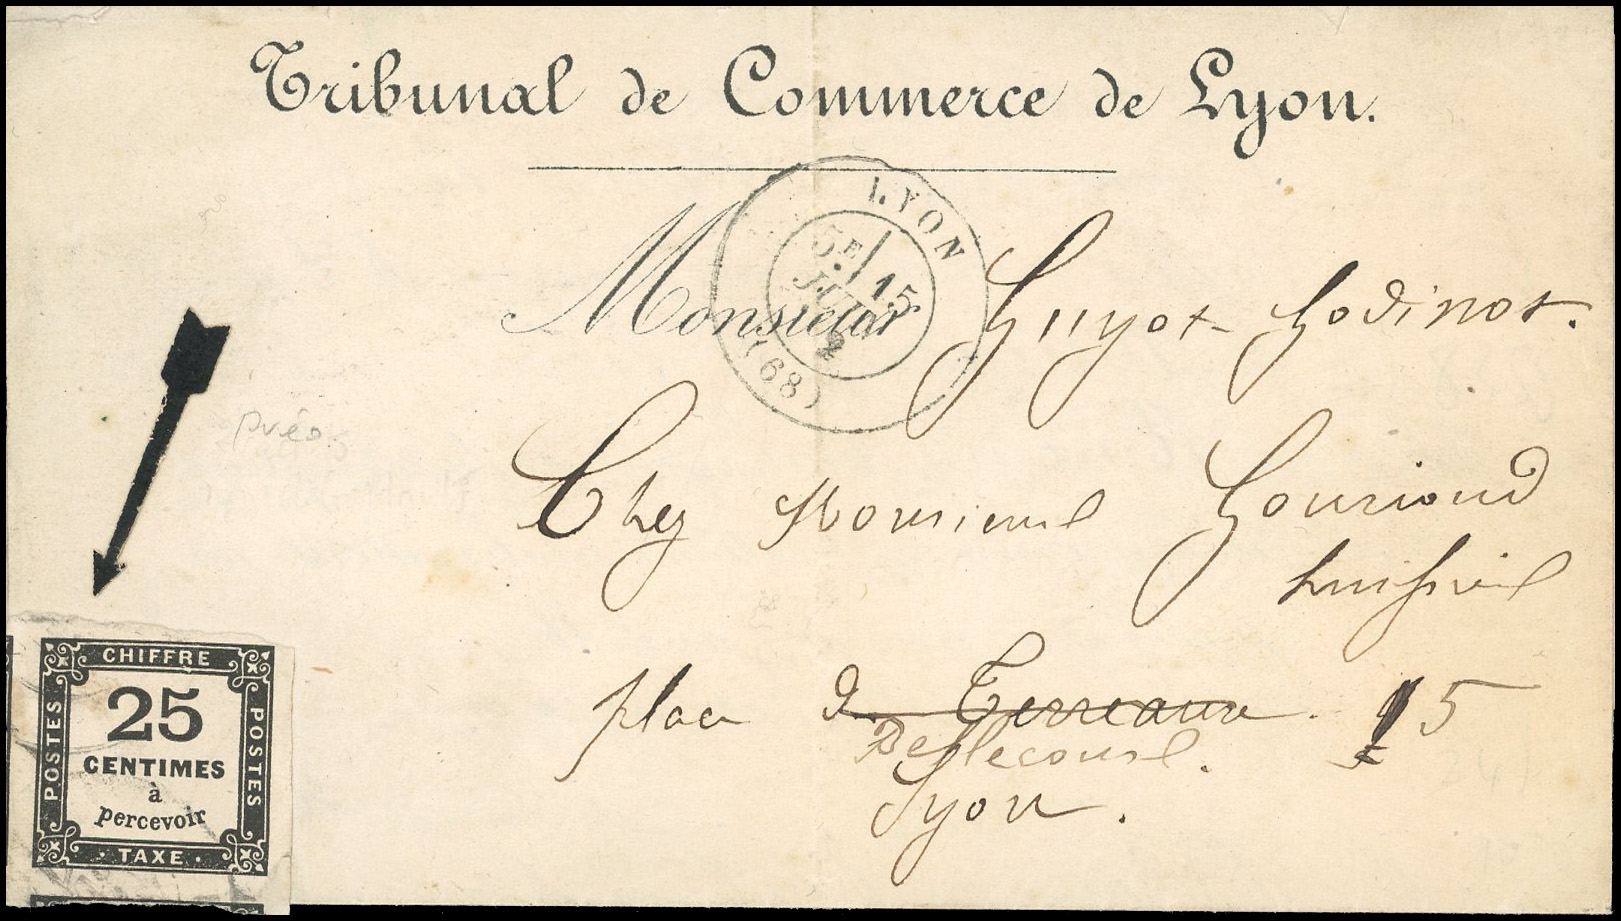 Tribunal de Commerce de Lyon.
LYON
5E/ 15
JUIN
(68)
Monsieur Guyot Godinot.
Chez Monsieur Gouriond
huissier
place de Terreaux. 5
Bellecour.
Lyon.
CHIFFRE
POSTES
25
CENTIMES
à
percevoir
POSTES
TAXE